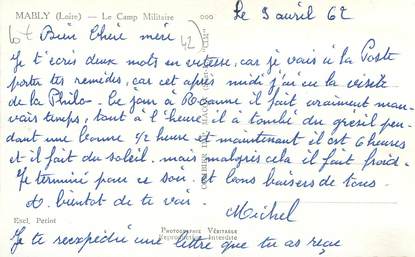 MABLY (Loire) — Le Camp Militaire
Le 3 avril 62
Bien Chère mère
Je t'écris deux mots en vitesse, car je vais à la Poste
porter tes remèdes, car cet après midi j'ai eu la visite
de la Philo. Ce jour à Roanne il fait vraiment mau-
vais temps, tant à l'heure il à tombé du gresil pen-
dant une bonne 1/2 heure et maintenant il est 6 heures
et il fait du soleil. mais malgrès cela il fait froid.
Je termine pour ce soir et bons baisers de tous.
a bientot de te voir.
Michel
Escl. Periot
Photographie Véritable
Reproduction Interdite
Je te reexpédie une lettre que tu as reçue